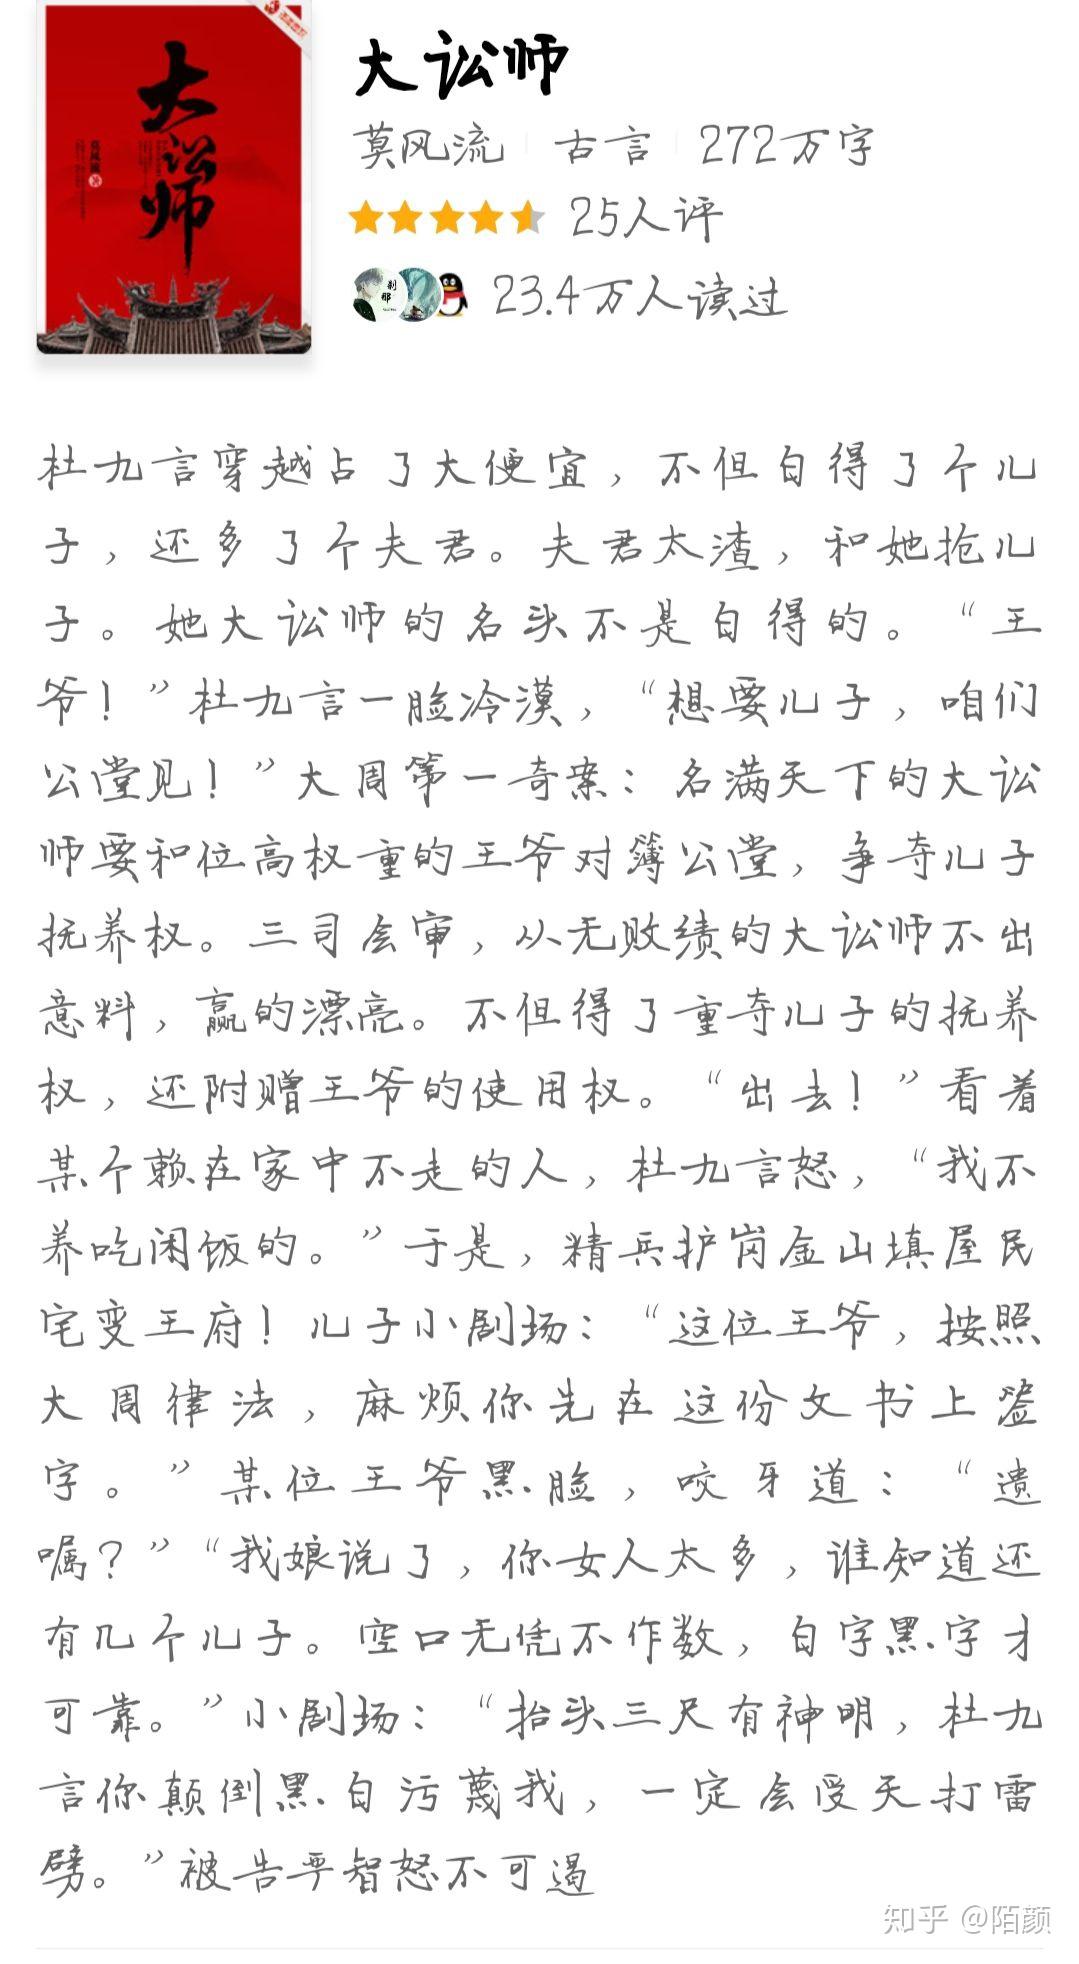 大讼师
莫风流 著
大讼师
莫风流 古言 272万字
25人评
刹那
23.4万人读过
杜九言穿越占了大便宜，不但白得了个儿
子，还多了个夫君。夫君太渣，和她抢儿
子。她大讼师的名头不是白得的。“王
爷！”杜九言一脸冷漠，“想要儿子，咱们
公堂见！”大周第一奇案：名满天下的大讼
师要和位高权重的王爷对簿公堂，争夺儿子
抚养权。三司会审，从无败绩的大讼师不出
意料，赢的漂亮。不但得了重夺儿子的抚养
权，还附赠王爷的使用权。“出去！”看着
某个赖在家中不走的人，杜九言怒，“我不
养吃闲饭的。”于是，精兵护岗金山填屋民
宅变王府！儿子小剧场：“这位王爷，按照
大周律法，麻烦你先在这份文书上签
字。”某位王爷黑脸，咬牙道：“遗
嘱？”“我娘说了，你女人太多，谁知道还
有几个儿子。空口无凭不作数，白字黑字才
可靠。”小剧场：“抬头三尺有神明，杜九
言你颠倒黑白污蔑我，一定会受天打雷
劈。”被告严智怒不可遏
知乎 @陌颜